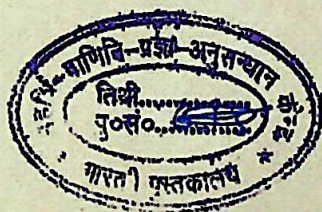 महर्षि-पाणिनि-प्रज्ञा-अनुसन्धान
तिथी............
पु०सं०............
भारती पुस्तकालय